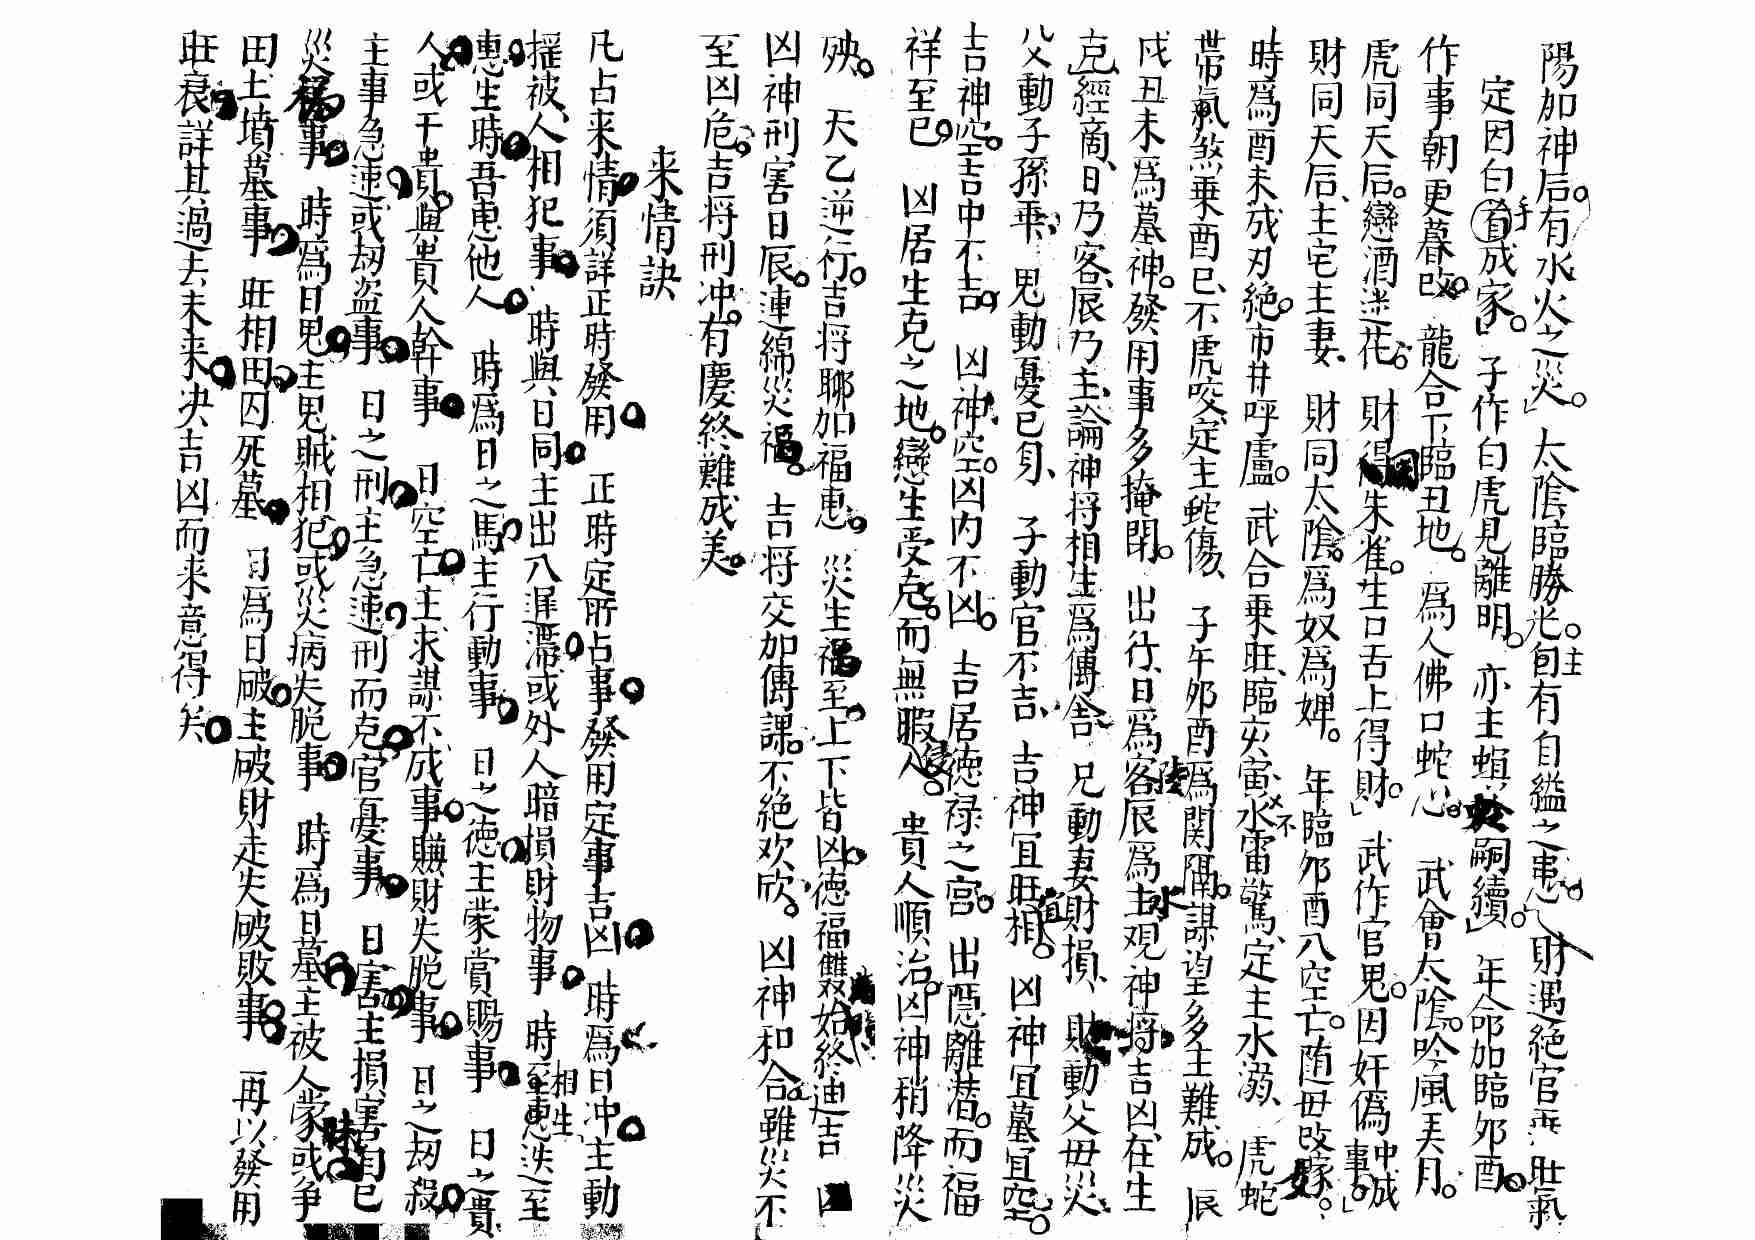 陽加神后有水火之災太陰臨勝光主包有自縊之患財遇絕官乖旺氣
定因白手成家子作白虎見離明亦主螟蛉嗣續年命加臨夘酉
作事朝更暮改龍合下臨丑地爲人佛口蛇心武會太陰吟風弄月
虎同天后戀酒迷花財得朱雀生口舌上得財武作官鬼因奸偽中成事
財同天后主宅主妻財同太陰爲奴爲婢年臨夘酉八空亡随母改嫁
時爲酉未成刃絕市井呼盧武合乘旺臨亥寅水不雷驚定主水溺虎蛇
帶氣煞乘酉巳不虎咬定主蛇傷子午夘酉爲関隔謀望多主難成辰
戍丑未爲墓神發用事多掩閉出行日爲客陸辰爲主水观神將吉凶在生
克經商日乃客辰乃主論神将相生爲傳合兄動妻財損財動父母災
父動子孫乖鬼動憂已身子動官不吉吉神宜旺相凶神宜墓宜空
吉神空吉中不吉凶神空凶内不凶吉居德禄之宫出隱離潜而福
祥至已凶居生克之地戀生受克而無暇侵人貴人順治凶神稍降災
殃天乙逆行吉将聊加福惠災生福至上下皆凶德福雙始終迪吉凶
凶神刑害日辰連綿災福吉将交加傳課不絕欢欣凶神和合雖災不
至凶危吉将刑冲有慶終難成美
来情訣
凡占来情須詳正時發用正時定所占事發用定事吉凶時爲日冲主動
摇被人相犯事時與日同主出入遲滯或外人暗損財物事時至相生惠迭至
惠生時吾惠他人時爲日之馬主行動事日之德主蒙賞賜事日之貴
人或干貴與貴人幹事日空亡主求謀不成事賺財失脱事日之刼殺
主事急速或刼盗事日之刑主急速刑而克官憂事日害主損害自已
災福事時爲日鬼主鬼賊相犯或災病失脱事時爲日墓主被人蒙昧或争
田土墳墓事旺相田囚死墓時爲日破主破財走失破敗事再以發用
旺衰詳其過去未来决吉凶而来意得矣